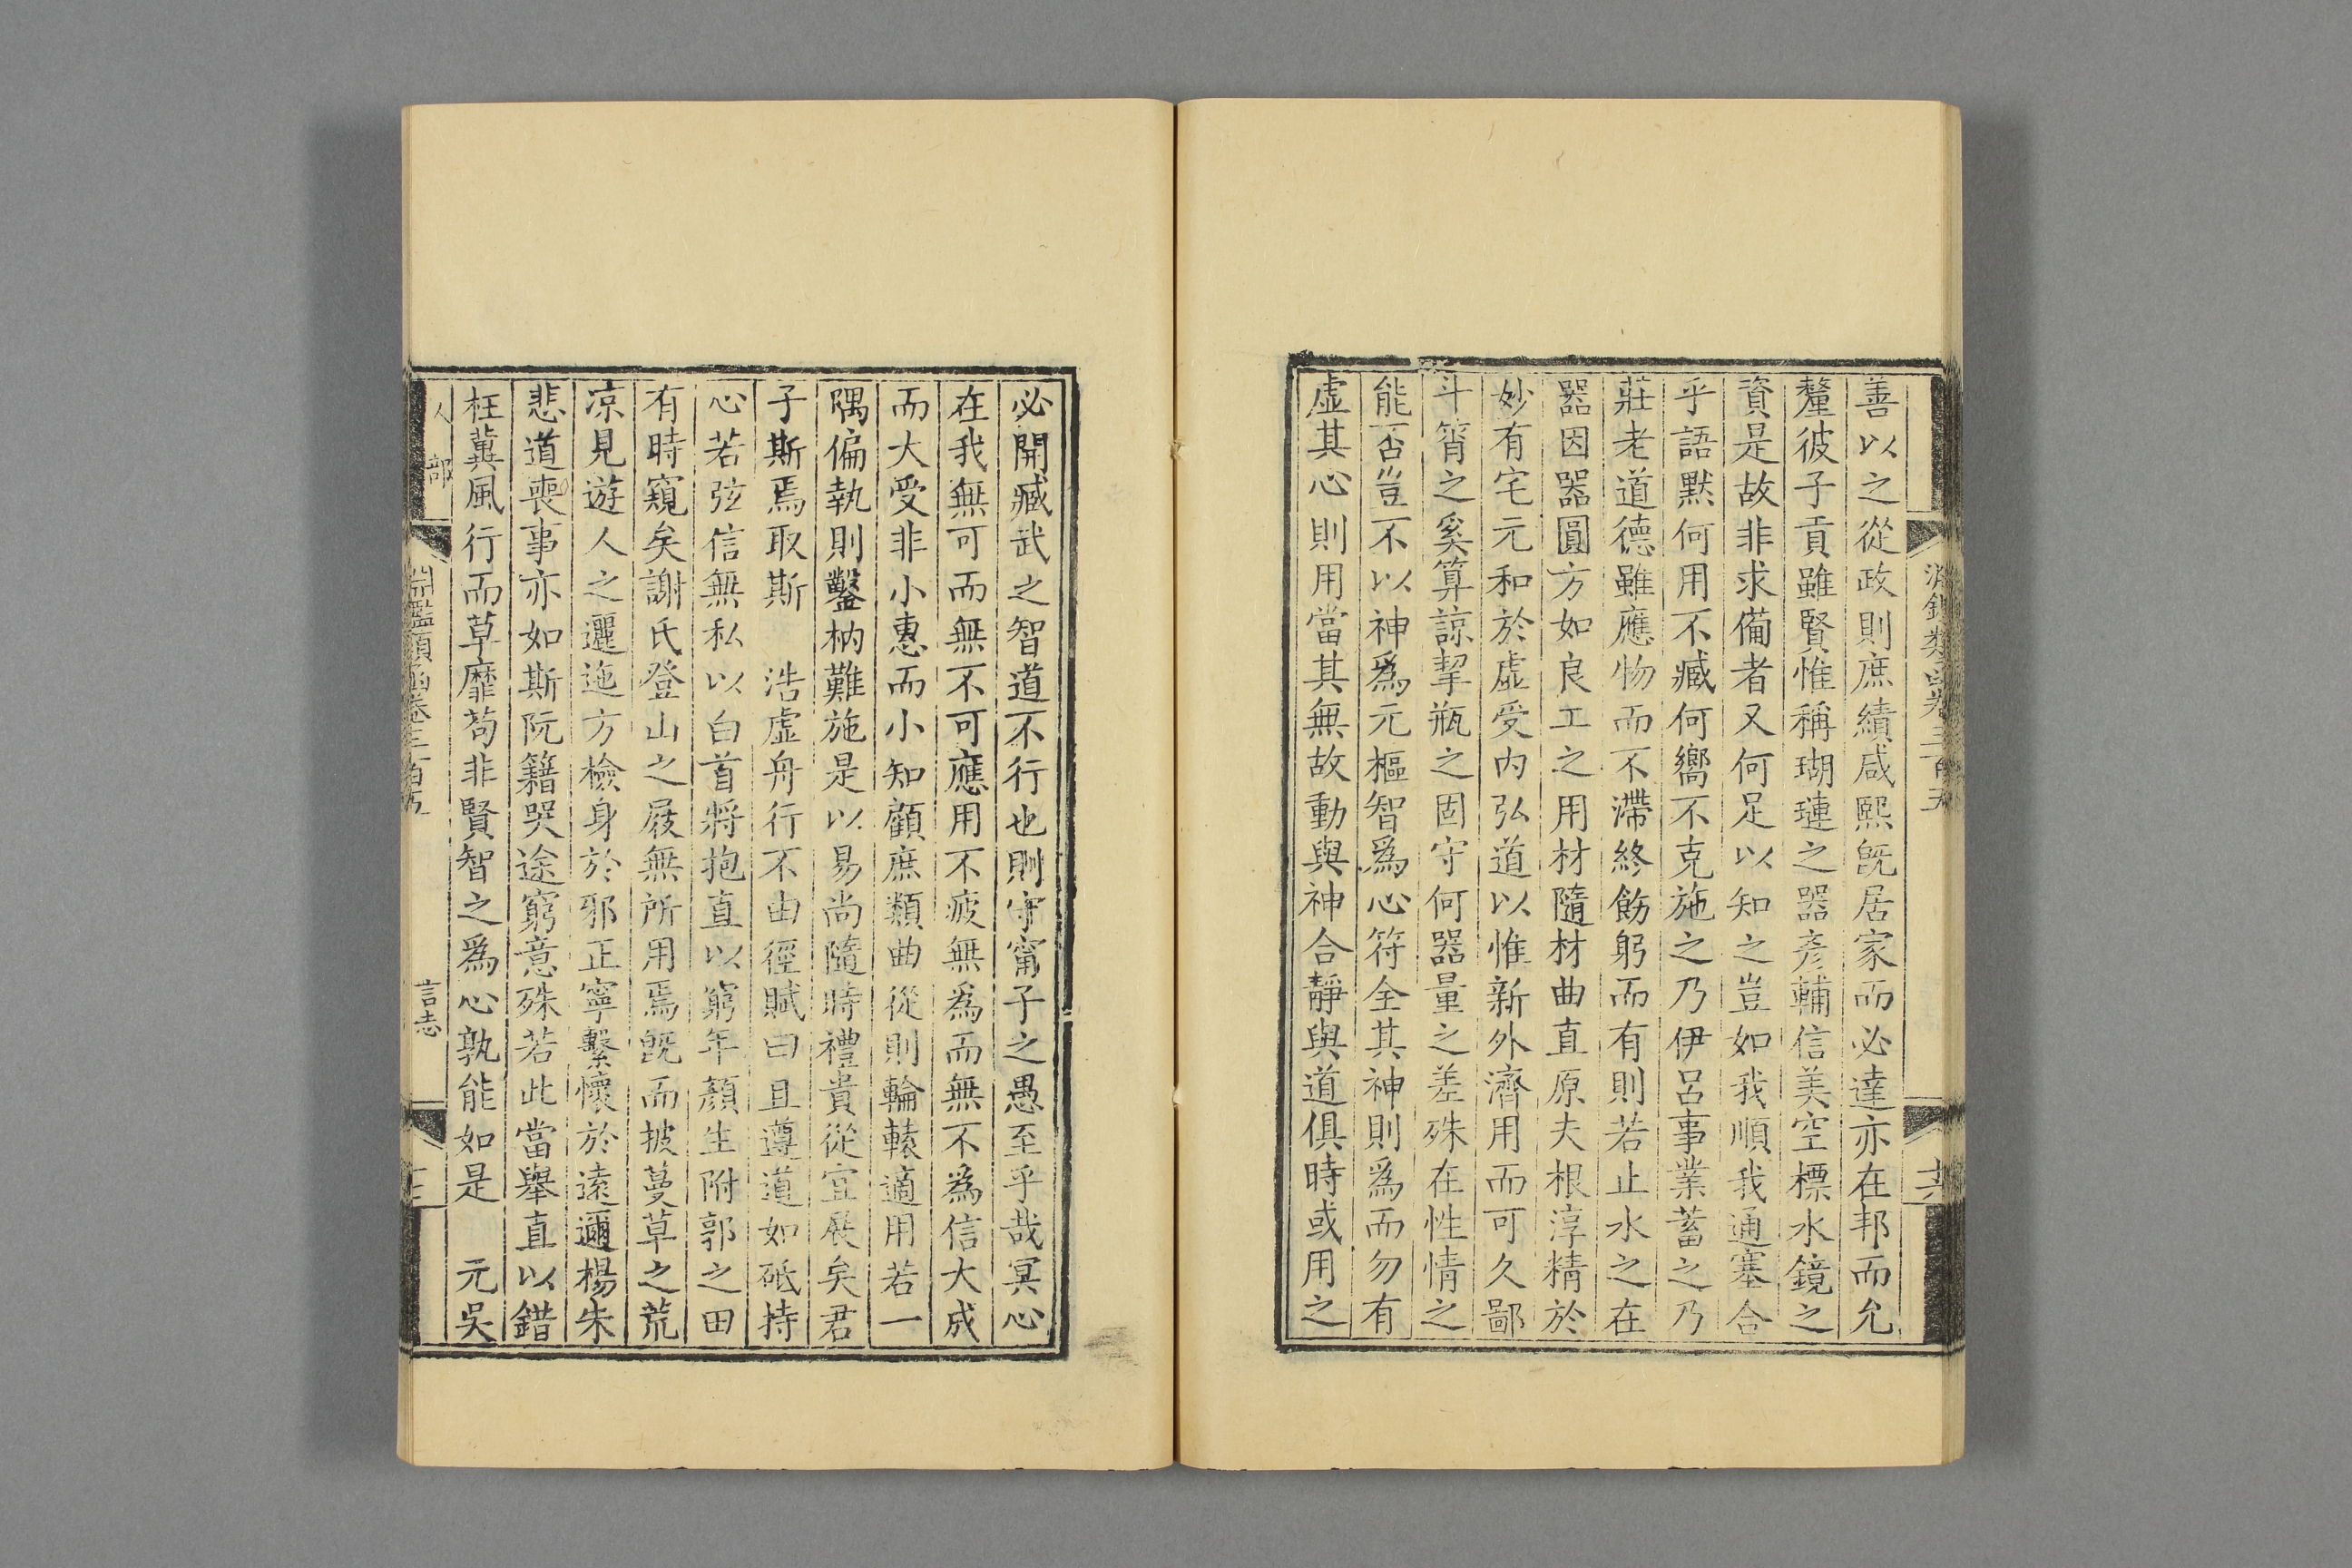 善以之從政則庶績咸熙旣居家而必達亦在邦而允
釐彼子貢雖賢惟稱瑚璉之器彦輔信美空標水鏡之
資是故非求備者又何足以知之豈如我順我通塞合
乎語默何用不臧何嚮不克施之乃伊呂事業蓄之乃
莊老道德雖應物而不滯終飭躬而有則若止水之在
器因器圓方如良工之用材隨材曲直原夫根淳精於
妙有宅元和於虛受内弘道以惟新外濟用而可久鄙
斗筲之奚算諒挈瓶之固守何器量之差殊在性情之
能否豈不以神爲元樞智爲心符全其神則爲而勿有
虛其心則用當其無故動與神合靜與道俱時或用之
必開臧武之智道不行也則守甯子之愚至乎哉冥心
在我無可而無不可應用不疲無爲而無不爲信大成
而大受非小惠而小知顧庶類曲從則輪轅適用若一
隅偏執則鑿枘難施是以易尚隨時禮貴從宜展矣君
子斯焉取斯　浩虛舟行不由徑賦曰且遵道如砥持
心若弦信無私以白首將抱直以窮年顏生附郭之田
有時窺矣謝氏登山之屐無所用焉旣而披蔓草之荒
凉見遊人之邐迤方檢身於邪正寧繫懷於遠邇楊朱
悲道喪事亦如斯阮籍哭途窮意殊若此當舉直以錯
枉冀風行而草靡苟非賢智之爲心孰能如是　元吳
人部
淵鑑類函卷三百五
言志